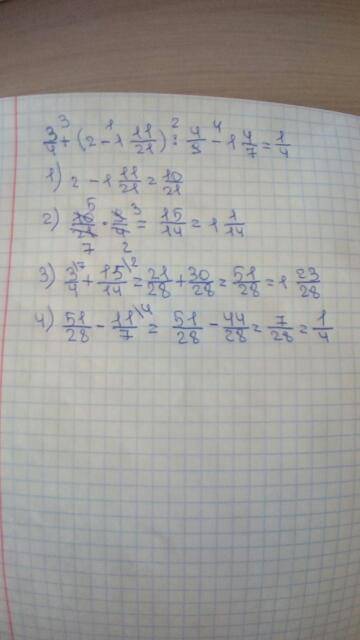 3/4 +³ (2 -¹ 1 11/21) :² 4/9 -⁴ 1 4/7 = 1/4
1) 2 - 1 11/21 = 10/21
2) 10⁵/21₇ · 9³/4₂ = 15/14 = 1 1/14
3) 3\⁷/4 + 15\²/14 = 21/28 + 30/28 = 51/28 = 1 23/28
4) 51/28 - 11\⁴/7 = 51/28 - 44/28 = 7/28 = 1/4